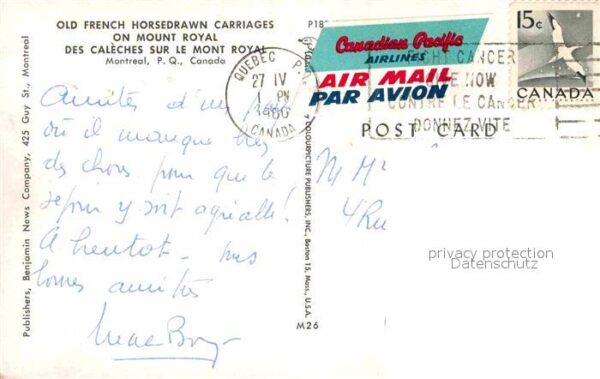 OLD FRENCH HORSEDRAWN CARRIAGES
ON MOUNT ROYAL
DES CALÈCHES SUR LE MONT ROYAL
Montreal, P. Q., Canada
P18
Canadian Pacific
AIRLINES
AIR MAIL
PAR AVION
15c
CANADA
QUEBEC P.
27 IV
1 PM
CANADA
FIGHT CANCER
NOW
CONTRE LE CANCER
DONNEZ VITE
POST CARD
Amitiés d'un pays
où il manque
des choses pour que le
séjour y soit agréable!
A bientôt - mes
bonnes amitiés
M M
4 Ru
Publishers, Benjamin News Company, 425 Guy St., Montreal
COLOURPICTURE PUBLISHERS, INC., Boston 15, Mass., U.S.A.
M26
privacy protection
Datenschutz